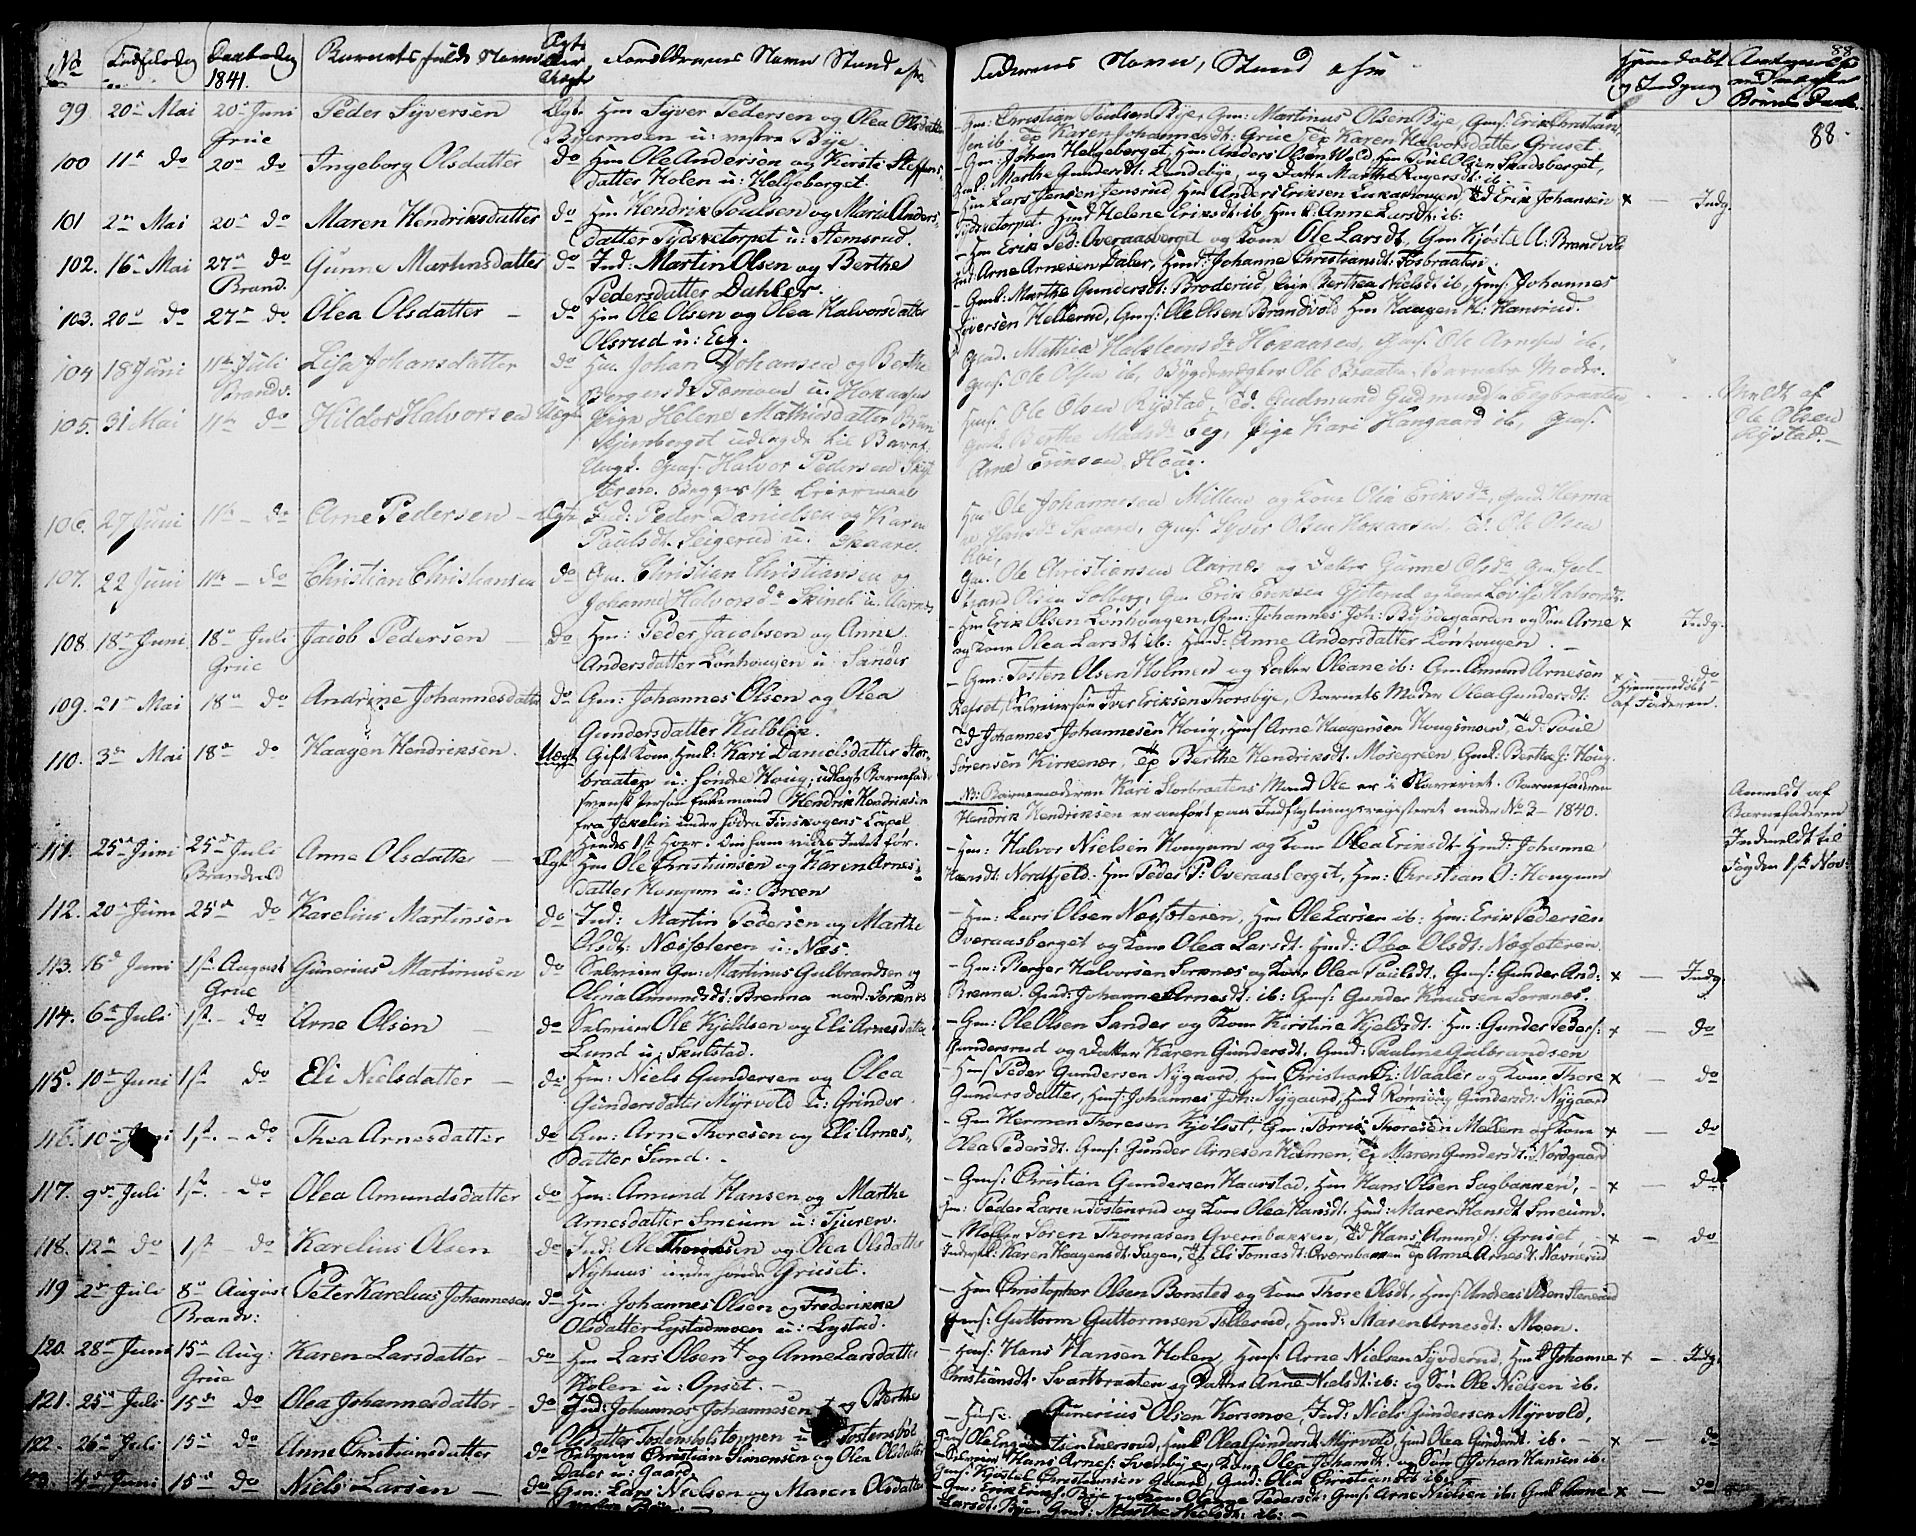 No Fødselsdag Daabsdag 1841. Barnets fulde Navn Ægte eller Uægte Forældrenes Navn Stand
Faddernes Navn, Stand 88
99 20de Mai 20de Juni Grue Peder Syversen Ægt. Hm Syver Pedersen og Olea Olsdatter
Byermoen u: vestre Bye.
Gm: Christian Poulsen Bye, Gm: Martinus Olsen Bye, Gmsf: Erik Christian
sen ib. Ep Karen Johannesdt: Grue, Ep Karen Halvorsdatter Gruset.
88
100 11te do 20de do Ingeborg Olsdatter do Hm Ole Andersen og Kirsti Steffens-
datter Holen u: Helgeberget.
Gm: Johan Helgeberget, Hm Anders Olsen Wold, Hm Poul Olsen Skadsberget,
Gmk: Marthe Gundersdt: Lundebye, og Datter Marthe Rogersdt: ib.
101 2den Mai 20de do Maren Hendriksdatter do Hm Hendrik Poulsen og Maria Anders-
datter Tydsketorpet u: Stemsrud.
Hm Lars Jensen Jensrud, Hm Anders Eriksen Lukashaugen Ed Erik Johansen
Tydsketorpet. Hmd Helene Eriksdt: ib. Hmk: Anne Larsdt: ib:
x — Indg.
102. 16de Mai 27de do Brand. Gunne Martinsdatter do Ind: Martin Olsen og Berthe
Pedersdatter Dahler.
Hm Erik Ped: Overaasberget og Kone Ole Larsdt, Gm Kjøste A: Brandvold
Ind Arne Arnesen Daler, Hmd: Johanne Christiansdt: Fosbraaten.
103. 20de do 27de do Olea Olsdatter — do Hm Ole Olsen og Olea Halvorsdatter
Olsrud u: Eeg.
Gmk: Marthe Gundersdt: Broderud, Pige Berthea Nielsdt ib, Hmsf: Johannes
Syversen Hellerud, Gmsf: Ole Olsen Brandvold Hm Haagen H: Hansrud.
104 18 Juni 11te Juli Brandv. Lisa Johansdatter do Hm. Johan Johansen og Berthe
Bergersdr Tomoen u. Hokaasen
Gmd. Mathea Halsteensdr Hokaasen, Gmsf. Ole Arnesen ib,
Gmsf. Ole Olsen ib, Bygdevægter Ole Braaten, Barnets Moder.
105. 31 Mai 11te do Hildor Halvorsen Uægt Pige Helene Mathisdatter Bran
Skjernberget udlagde til Barnef.
Ungk. Gmsf. Halvor Pedersen Skyt
teren. Begges 1ste Leiermaal
Hmsf. Ole Olsen Rystad, Ed. Gudmund Gudmundsen Eegbraaten
Gmk. Berthe Madsdr Eeg, Pige Kari Haugaard ib, Gmsf.
Arne Eriksen Houg.
Meldt af
Ole Olsen
Rystad.
106. 27 Juni 11te do Arne Pedersen — Ægte Ind: Peder Danielsen og Karen
Paulsdt. Seigerud u. Skaare.
Hm Ole Johannesen Millem og Kone Olia Eriksdr, Gmd. Herma
Hansdr Skaare, Gmsf. Syver Olsen Hokaasen, Ed. Ole Olsen
Roi.
107. 22 Juni 11te — do Christian Christiansen do Gm. Christian Christiansen og
Johanne Halvorsdr Skineb u. Aarnes
Gm. Ole Christiansen Aarnes og Datter Gunne Olsdr Gm. Gul-
brand Olsen Solberg, Gm Erik Eriksen Gjeterud og Kone Lovise Halvorsdt.
108. 18de Juni 18de Juli Grue Jacob Pedersen do Hm: Peder Jacobsen og Anne
Andersdatter Lønhougen u: Sander
Hm Erik Olsen Lønhougen, Gm: Johannes Joh: Bysodegaarden og Søn Arne x Indg.
og Kone Olea Larsdt ib: Hmd: Anne Andersdatter Lønhougen.
109. 21de Mai 18de do Andrine Johannesdatter do Gm: Johannes Olsen og Olea
Gundersdatter Kulblik.
Gm: Tosten Olsen Holmen og Datter Oleane ib: Gm: Amund Arnesen
Refset, Selveiersøn Iver Eriksen Thorsbye, Barnets Moder Olea Gundersdt:
x Hjemmedøbt af Faderen. do
110. 3de Mai 18de do Haagen Hendriksen. Uægt Gift Kone Hmk. Kari Danielsdatter Stor-
braaten u: søndre Houg, udlagt Barnefader
svensk Person Enkemand Hendrik Hendriksen
fra Jekelin under Södra Finskogens Capel
Hendes 1st Hoer. Om ham vides Intet før.
Ed. Johannes Johannesen Houg, Hmsf Arne Haagensen Hougsmoen, Ed: Poul
Sørensen Kirkenær, Ep Berthe Hendriksdt: Mosegreen, Gmk. Berthe J: Houg.
NB: Barnemoderen Kari Storbraatens Mand Ole er i Slaveriet. Barnefaderen
Hendrik Hendriksen er anført paa Indflytningsregisteret under No 3 — 1840.
Anmeldt af
Barnefaderen
Indmeldt til
Fogden 1ste Nov:
111. 25de Juni 25de Juli Brandvold Anne Olsdatter — Ægt Hm Ole Christiansen og Karen Arnes-
datter Hougum u: Breen
Hm: Halvor Nielsen Hougum og Kone Olea Eriksdt. Hmd: Johanne
Hansdt: Nordfjeld. Hm Peder P: Overaasberget, Hm: Christian O: Hougum
112. 20de Juni 25de do Karelius Martinsen do Ind: Martin Pedersen og Marthe
Olsdt: Næssæteren u: Næs.
Hm: Lars Olsen Næssæteren, Hm Ole Larsen ib: Hm: Erik Pedersen
Overaasberget og Kone Olea Larsdt. Hmd: Olea Olsdt: Næssæteren.
113. 16de Juni 1ste August Grue Gunerius Martinusen do Selveier Gm: Martinus Gulbrandsen og
Olina Amundsdt: Brenna nord: Sorknes
Gm: Berger Halvorsen Sorknes og Kone Olea Paulsdt. Gmsf: Gunder And:
Brenna. Gmd: Johanne Arnesdt: ib: Gmsf: Gunder Knudsen Sorknes.
x — Indg.
114. 6te Juli 1st. — do Arne Olsen — do Selveier Ole Kjeldsen og Eli Arnesdatter
Lund u: Skulstad.
Gm: Ole Olsen Sander og Kone Kirstine Kjeldsdt. Hm: Gunder Peders:
Gundersrud og Datter Karen Gundersdt. Gmd: Pauline Gulbrandsen
x — do
115. 10de Juni 1st do Eli Nielsdatter — do Hm: Niels Gundersen og Olea
Gundersdatter Myrvold u: Grinder.
Hmsf Peder Gundersen Nygaard, Hm Christian Ch: Waaler og Kone Thore x — do
Gundersdatter, Hmsf: Johannes Joh: Nygaard, Hmd Rønnoug Gundersdt: Nygaard
116. 10de 1st. — do Thea Arnesdatter do Gm: Arne Thoresen og Eli Arnes-
datter Sund. —
Gm Herman Thoresen Kjølset. Gm: Torris Thoresen Mellem og Kone x — do
Olea Pedersdt. Gmsf: Gunder Arnesen Holmen, Ep Maren Gundersdt: Nordgaard
117. 9de Juli 1st. — do Olea Amundsdatter do Hm: Amund Hansen og Marthe
Arnesdatter Smeium u: Tjuren.
Gmsf: Christian Gundersen Haarstad, Hm Hans Olsen Sagbakken, x — do
Hm: Peder Larsen Tostenrud og Kone Olea Hansdt. Hmd: Maren Hansdt Smeium.
118. 12te do 1st — do Karelius Olsen do Ind: Ole Thomesen og Olea Olsdatter
Nyhuus under søndre Gruset.
Møller Søren Thomasen Qvernbakken, Ed Hans Amunds: Gruset, x — do
Karen Haagensdt: Sagen, Ep Eli Tomasdt: Qvernbakken Ep Anne Arnesdt: Navnerud
119 2den Juli 8de August Brandv: Peter Karelius Johannesen do Hm: Johannes Olsen og Frederikke
Olsdatter Lystadmoen u: Lystad.
Hm Christopher Olsen Bonsted og Kone Thore Olsdt, Hmsf: Andreas Olsen Stenerud
Gmsf: Guttorm Guttormsen Tollerud, Hmd: Maren Arnesdt: Moen.
120. 28de Juni 15de Aug: Grue Karen Larsdatter — do Hm Lars Olsen og Anne Larsdatter
Holen u: Opset. —
Hmsf: Hans Hansen Holen, Hmsf: Arne Nielsen Syvderud, Hmk Johanne x — Indg.
Christiansdt. Svartbraaten og Datter Anne Nielsdt: ib: og Søn Ole Nielsen ib.
121. 25de Juli 15de do Olea Johannesdatter — do Ind: Johannes Johannesen og Berthe
Olsdatter Tostensholstoppen u: Tostenshol
Hmsf: Gunerius Olsen Korsmoe, Ind: Niels Gundersen Myrvold,
Hmk Olea Gundersdt Myrvold, Hmd Olea Gundersdt: ib. x — do
122. 26de Juli 15de do Anne Christiansdatter do Selveier Christian Simensen og Olea Olsdatter
Daler u: Gaard
Selveier Hans Arnes: Svenby og Kone Olea Johansdt. og Søn Johan Hansen ib.
Gmsf: Kjøstel Christiansen Gaard, Gmd: Olia Christiansdt ib.
4de Juni 15de do Niels Larsen — do Gm: Lars Nielsen og Maren Olsdatter
Gm: Erik Eriks: Bye og Kone Pedersdt: Gmsf: Arne Nielsen ib: Gmk Anne x — do
Larsdt: Bye. Gmd: Marthe Nielsdt: ib: —